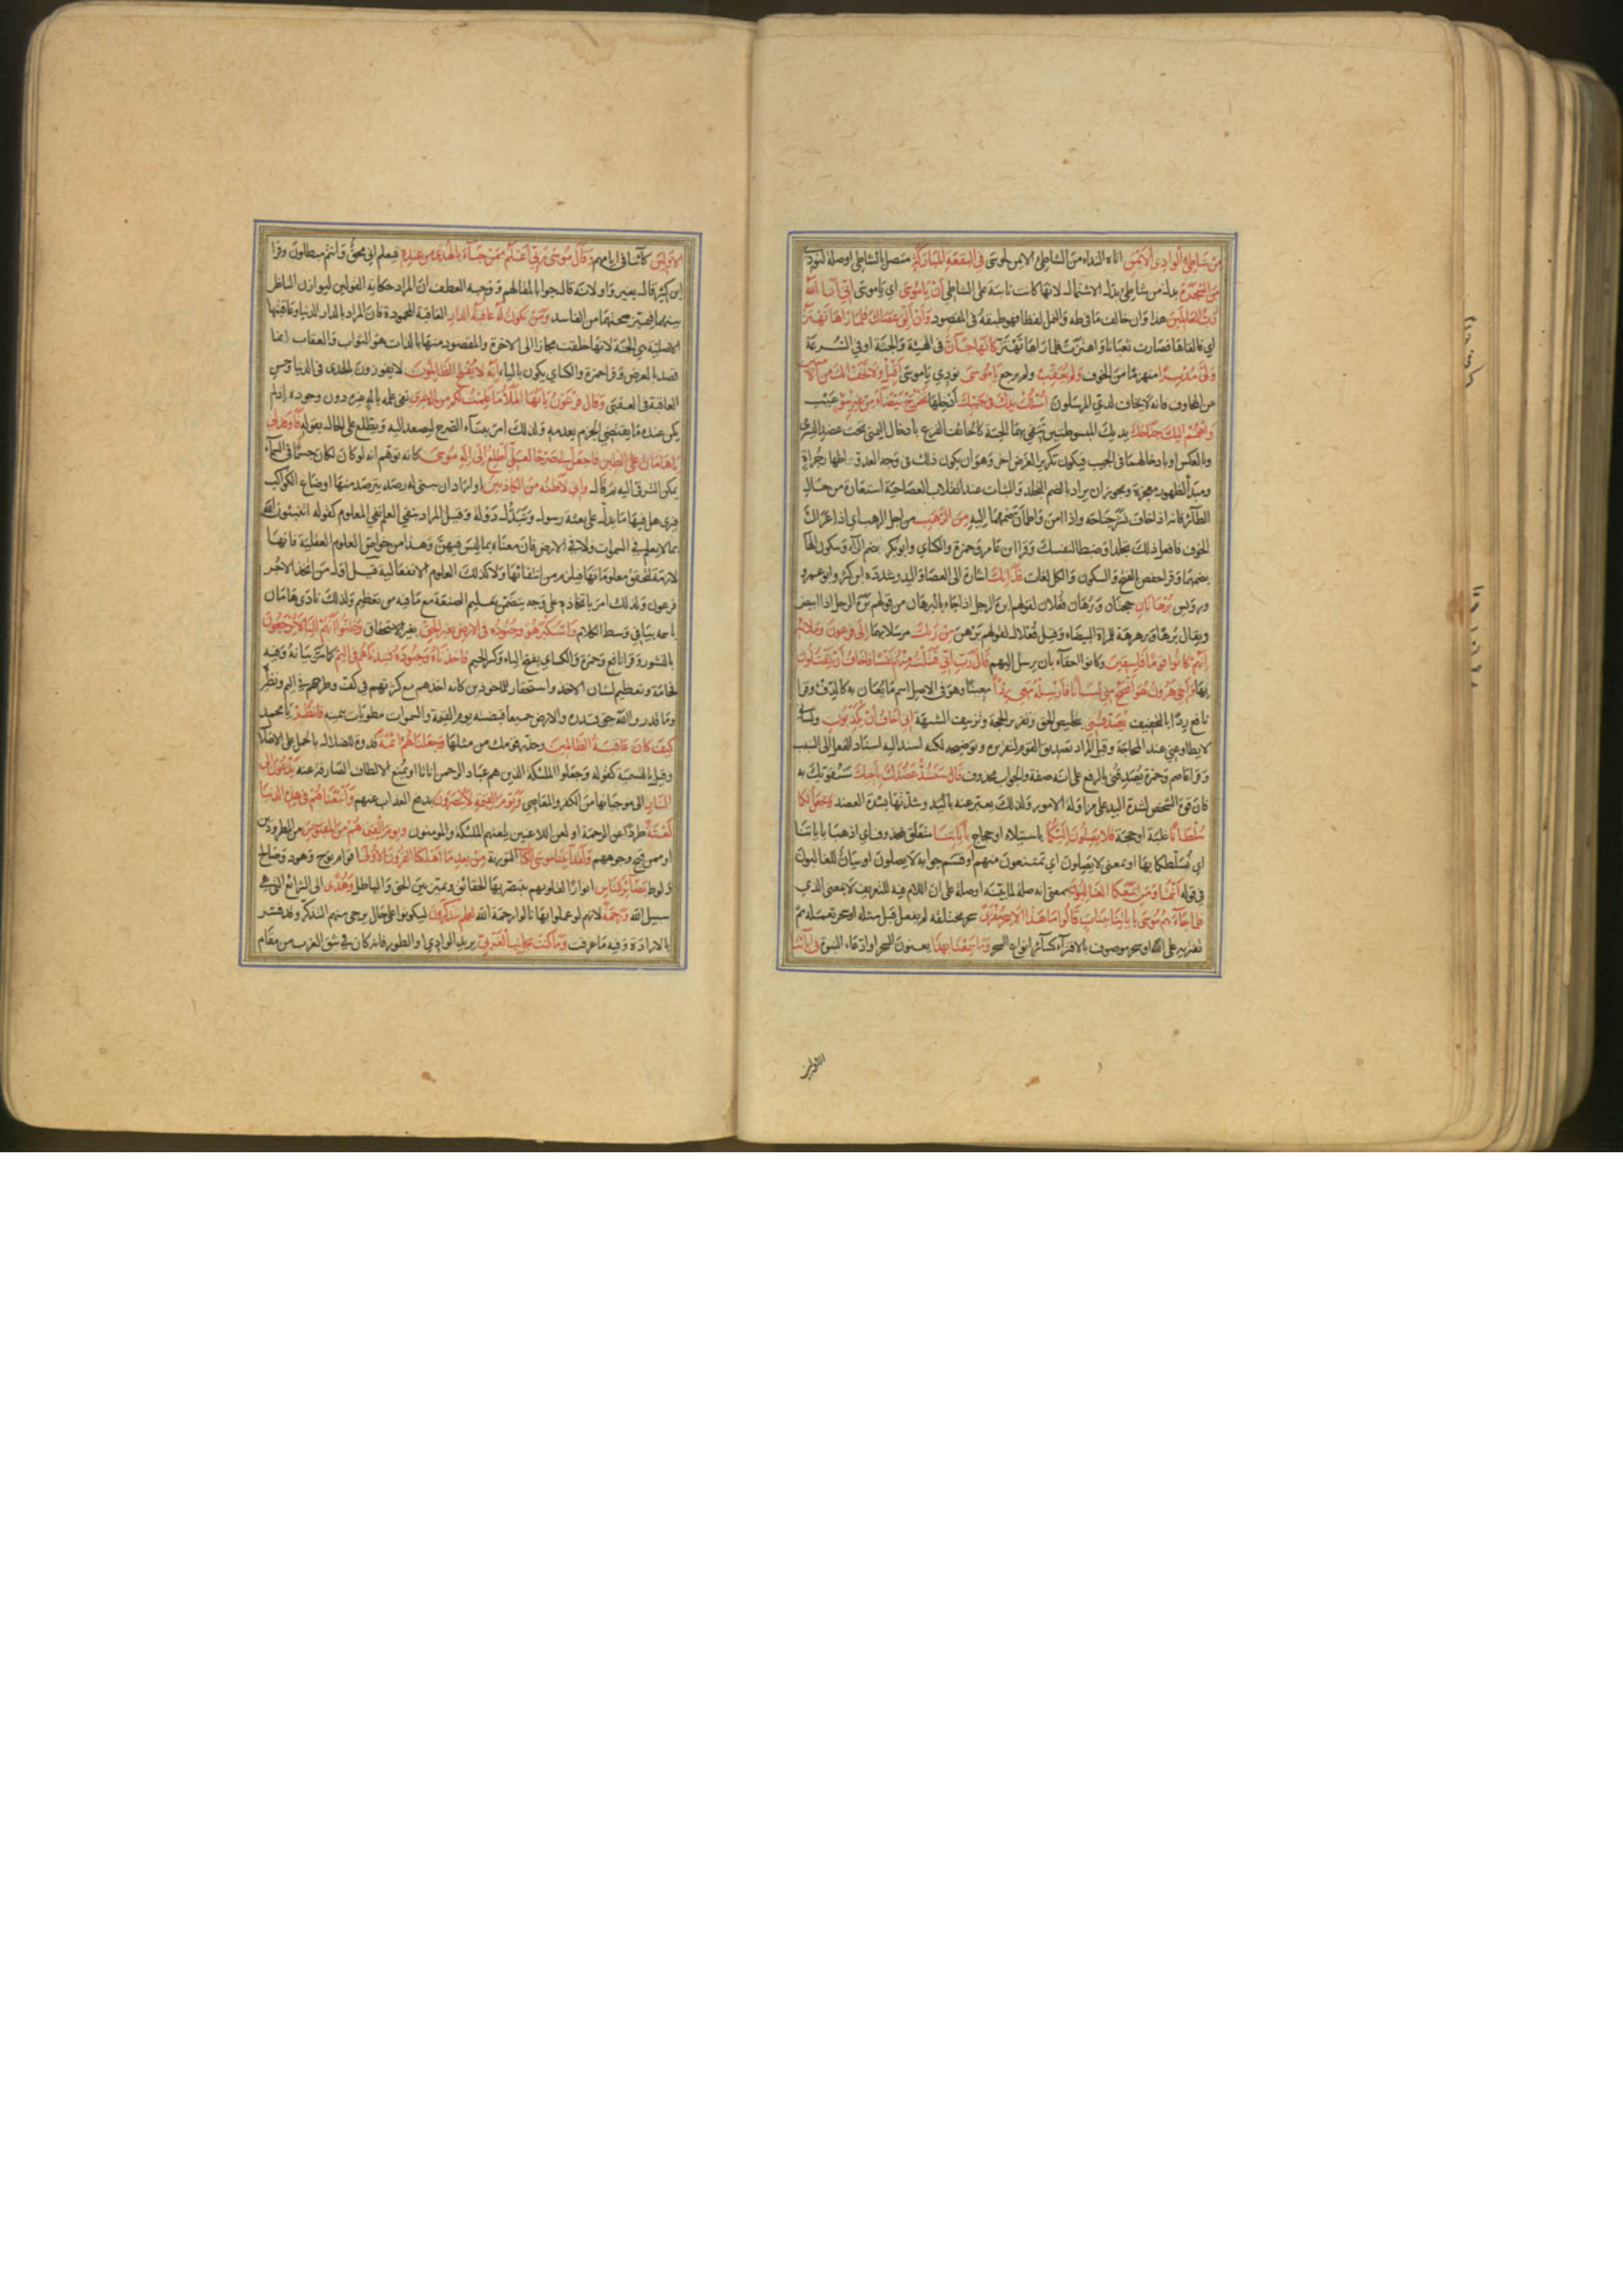 من شاطئ الوادى الأيمن اتاه النداء من الشاطئ الايمن لموسى فى البقعة المباركة متصل بالشاطئ او صلة لنودي
من الشجرة بدل من شاطئ بدل الاشتمال لانها كانت نابتة على الشاطئ أن يا موسى اي يا موسى اني أنا الله
رب العالمين هذا وان خالف ما فى طه والنمل لفظا فهو طبقه فى المقصود وأن ألق عصاك فلما رآها تهتز
اي فالقاها فصارت ثعبانا واهتزت فلما رآها تهتز كأنها جان فى الهيئة والجثة او في السرعة
ولى مدبرا منهزما من الخوف ولم يعقب ولم يرجع يا موسى نودي يا موسى أقبل ولا تخف انك من الآمنين
من المخاوف فانه لا يخاف لدي المرسلون اسلك يدك في جيبك أدخلها تخرج بيضاء من غير سوء عيب
واضمم اليك جناحك يديك المبسوطتين تتقي بهما الحية كالخائف الفزع بادخال اليمنى تحت عضد اليسرى
وبالعكس او بادخالهما فى الجيب فيكون تكريرا لغرض اخر وهو ان يكون ذلك فى وجه العدو اظهار جراة
ومبدأ لظهور معجزة ويجوز ان يراد بالضم التجلد والثبات عند انقلاب العصا حية استعارة من حال
الطائر فانه اذا خاف نشر جناحه واذا امن واطمأن ضمهما اليه من الرهب من اجل الرهب اي اذا عراك
الخوف فافعل ذلك تجلدا وضبطا لنفسك وقرا ابن عامر وحمزة والكساي وابو بكر بضم الراء وسكون الها
بضمهما وقرا حفص بالفتح والسكون والكل لغات فذانك اشارة الى العصا واليد وشدده ابن كثير وابو عمرو
ورويس برهانان حجتان وبرهان فعلان لقولهم ابره الرجل اذا جاء بالبرهان من قولهم بره الرجل اذا ابيض
ويقال برهاء وبرهرهة للمراة البيضاء وقيل فعلال لقولهم برهن من ربك مرسلا بهما إلى فرعون وملائه
إنهم كانوا قوما فاسقين وكانوا احقاء بان يرسل اليهم قال رب اني قتلت منهم نفسا فاخاف أن يقتلون
بها وأخي هرون هو أفصح مني لسانا فأرسله معي ردءا معينا وهو فى الاصل اسم ما يعان به كالدفء وقرا
نافع ردا بالتخفيف يصدقني بتخليص الحق وتقرير الحجة وتزييف الشبهة إني أخاف أن يكذبون ولساني
لا يطاوعني عند المحاجة وقيل المراد تصديق القوم لتقريره وتوضيحه لكنه اسند اليه اسناد الفعل الى السبب
وقرا عاصم وحمزة يصدقني بالرفع على انه صفة والجواب محذوف قال سنشد عضدك بأخيك سنقويك به
فان قوة الشخص لشدة اليد على مزاولة الامور ولذلك يعبر عنه باليد وشدتها بشدة العضد ونجعل لكما
سلطانا غلبة او حجة فلا يصلون إليكما باستيلاء او حجاج بآياتنا متعلق بمحذوف اي اذهبا باياتنا
اي نسلطكما بها او بمعنى لا يصلون اي تمتنعون منهم او قسم جوابه لا يصلون او بيان للغالبون
في قوله أنتما ومن اتبعكما الغالبون بمعنى انه صلة لما بينه او صلة على ان اللام فيه للتعريف لا بمعنى الذي
فلما جاءهم موسى بآياتنا بينات قالوا ما هذا الا سحر مفترى سحر تختلقه لم يفعل قبل مثله او سحر تعمله ثم
تفتريه على الله او سحر موصوف بالافتراء كسائر انواع السحر وما سمعنا بهذا يعنون السحر او ادعاء النبوة فى آبائنا
الاولين
الأولين كائنا في ايامهم وقال موسى ربي أعلم بمن جاء بالهدى من عنده فيعلم اني محق وانتم مبطلون وقرا
ابن كثير قال بغير واو لانه قال جوابا لمقالهم ووجه العطف ان المراد حكاية القولين ليوازن الناظر
بينهما فيميز صحتهما من الفاسد ومن تكون له عاقبة الدار العاقبة المحمودة فان المراد بالدار الدنيا وعاقبتها
الاصلية هي الجنة لانها خلقت مجازا الى الاخرة والمقصود منها بالذات هو الثواب والعقاب انما
قصد بالعرض وقرا حمزة والكساي يكون بالياء إنه لا يفلح الظالمون لا يفوزون بالهدى فى الدنيا وحسن
العاقبة فى العقبى وقال فرعون يا أيها الملأ ما علمت لكم من إله غيري نفى علمه باله غيره دون وجوده اذ لم
يكن عنده ما يقتضي الجزم بعدمه ولذلك امر ببناء الصرح ليصعد اليه ويطلع على الحال بقوله فأوقد لي
يا هامان على الطين فاجعل لي صرحا لعلي أطلع إلى إله موسى كانه توهم انه لو كان لكان جسما فى السماء
يمكن الترقي اليه ثم قال وإني لأظنه من الكاذبين او اراد ان يبني له رصدا يترصد منها اوضاع الكواكب
فيرى هل فيها ما يدل على بعثة رسول وتبدل دولة وقيل المراد بنفي العلم نفي المعلوم كقوله اتنبئون الله
بما لا يعلم في السموات ولا في الارض فان معناه بما ليس فيهن وهذا من خواص العلوم الفعلية فانها
لازمة لتحقق معلوماتها فيلزم من انتفائها ولا كذلك العلوم الانفعالية قيل اول من اتخذ الاجر
فرعون ولذلك امر باتخاذه على وجه يتضمن تعليم الصنعة مع ما فيه من تعظيم ولذلك نادى هامان
باسمه بيا في وسط الكلام واستكبر هو وجنوده فى الارض بغير الحق بغير استحقاق وظنوا أنهم إلينا لا يرجعون
بالنشور وقرا نافع وحمزة والكساي بفتح الياء وكسر الجيم فأخذناه وجنوده فنبذناهم فى اليم كما مر بيانه وفيه
فخامة وتعظيم لشان الاخذ واستحقار للماخوذين كانه اخذهم مع كثرتهم في كف وطرحهم في اليم ونظيره
وما قدروا الله حق قدره والارض جميعا قبضته يوم القيمة والسموات مطويات بيمينه فانظر يا محمد
كيف كان عاقبة الظالمين وحذر قومك من مثلها وجعلناهم أئمة قدوة للضلال بالحمل على الاضلال
وقيل بالتسمية كقوله وجعلوا الملئكة الذين هم عباد الرحمن اناثا او بمنع الالطاف الصارفة عنه يدعون إلى
النار الى موجباتها من الكفر والمعاصي ويوم القيمة لا ينصرون بدفع العذاب عنهم وأتبعناهم فى هذه الدنيا
لعنة طردا عن الرحمة او لعن اللاعنين يلعنهم الملئكة والمومنون ويوم القيمة هم من المقبوحين من المطرودين
او ممن قبح وجوههم ولقد آتينا موسى الكتاب التورية من بعد ما أهلكنا القرون الأولى اقوام نوح وهود وصالح
ولوط بصائر للناس انوارا لقلوبهم يتبصر بها الحقائق ويميز بين الحق والباطل وهدى الى الشرائع التي هي
سبيل الله ورحمة لانهم لو عملوا بها نالوا رحمة الله لعلهم يتذكرون ليكونوا على حال يرجى منهم التذكر وقد فسر
بالارادة وفيه ما عرفت وما كنت بجانب الغربي يريد الوادي او الطور فانه كان في شق الغرب من مقام